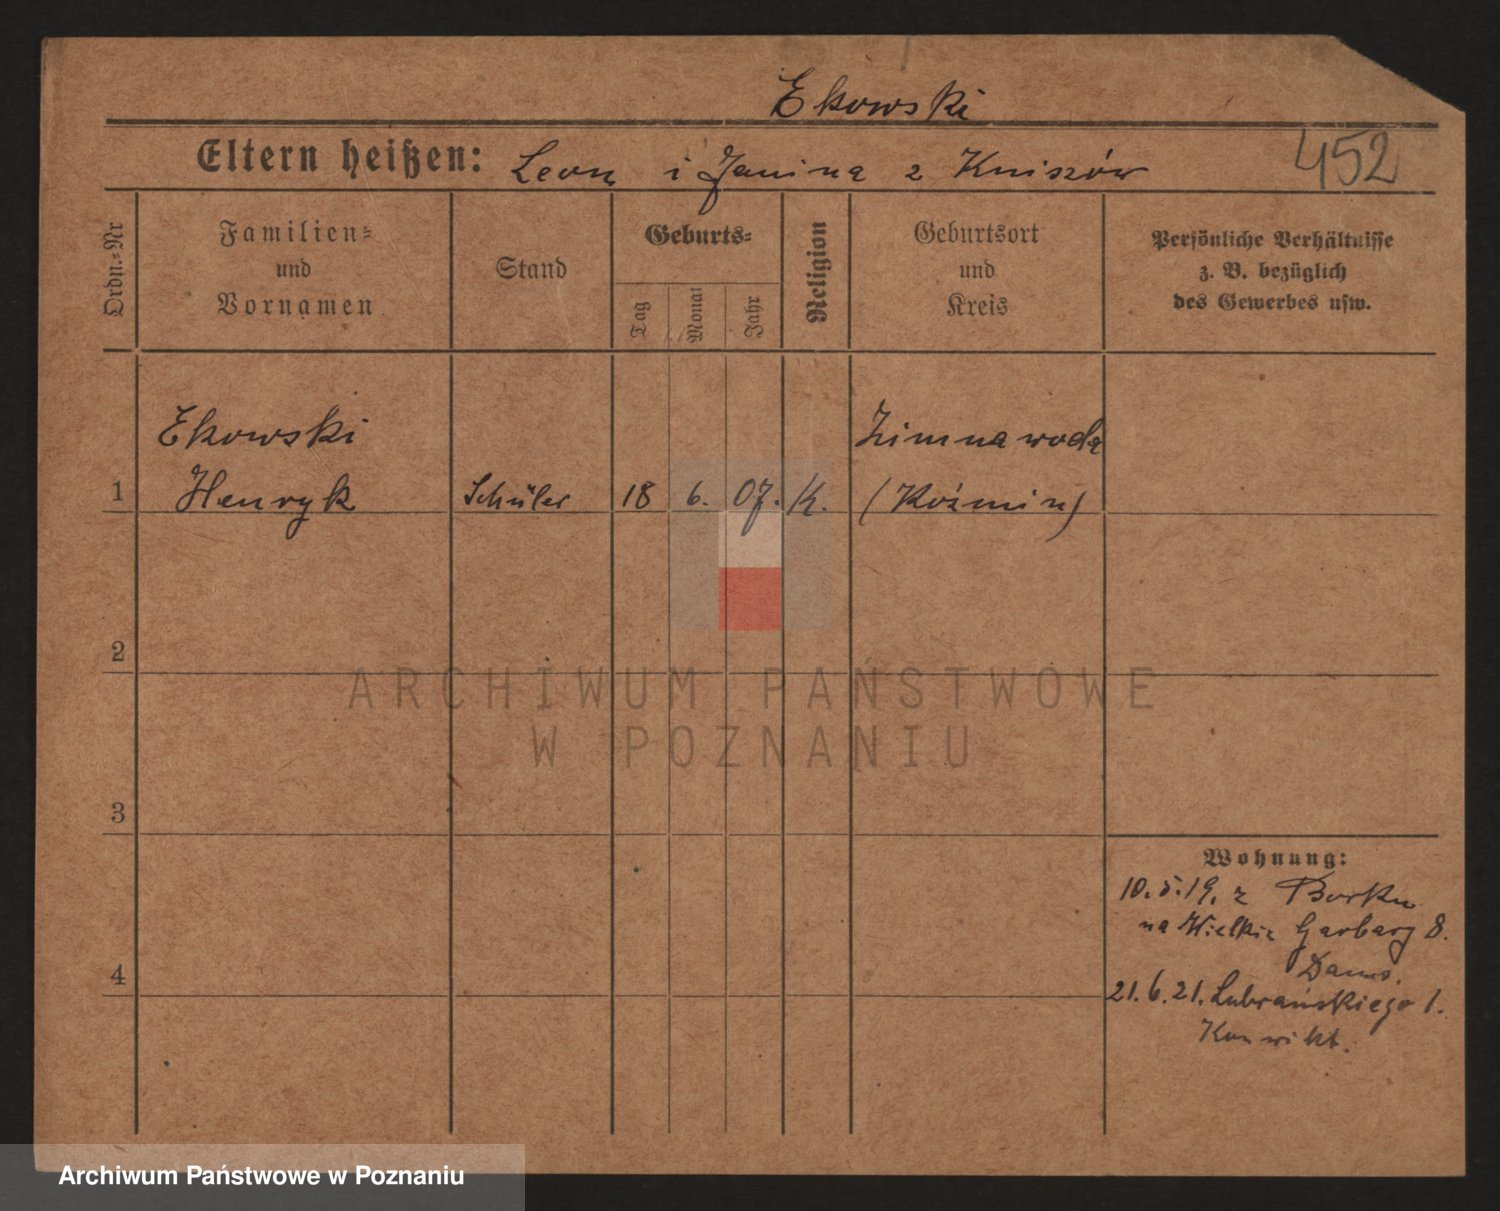 Ekowski
Eltern heißen: Leon i Janina z Kniszów 452
Ordn.-Nr
Familien-
und
Vornamen
Stand
Geburts-
Tag
Monat
Jahr
Religion
Geburtsort
und
Kreis
Persönliche Verhältnisse
z. B. bezüglich
des Gewerbes usw.
Ekowski Zimnawoda
1 Henryk Schüler 18 6. 07. K. (Koźmin)
2
ARCHIWUM PAŃSTWOWE
W POZNANIU
3
Wohnung:
10.5.19. z Borku
na Wielkie Garbary 8.
4
21.6.21. Lubrańskiego 1.
Konwikt.
Archiwum Państwowe w Poznaniu